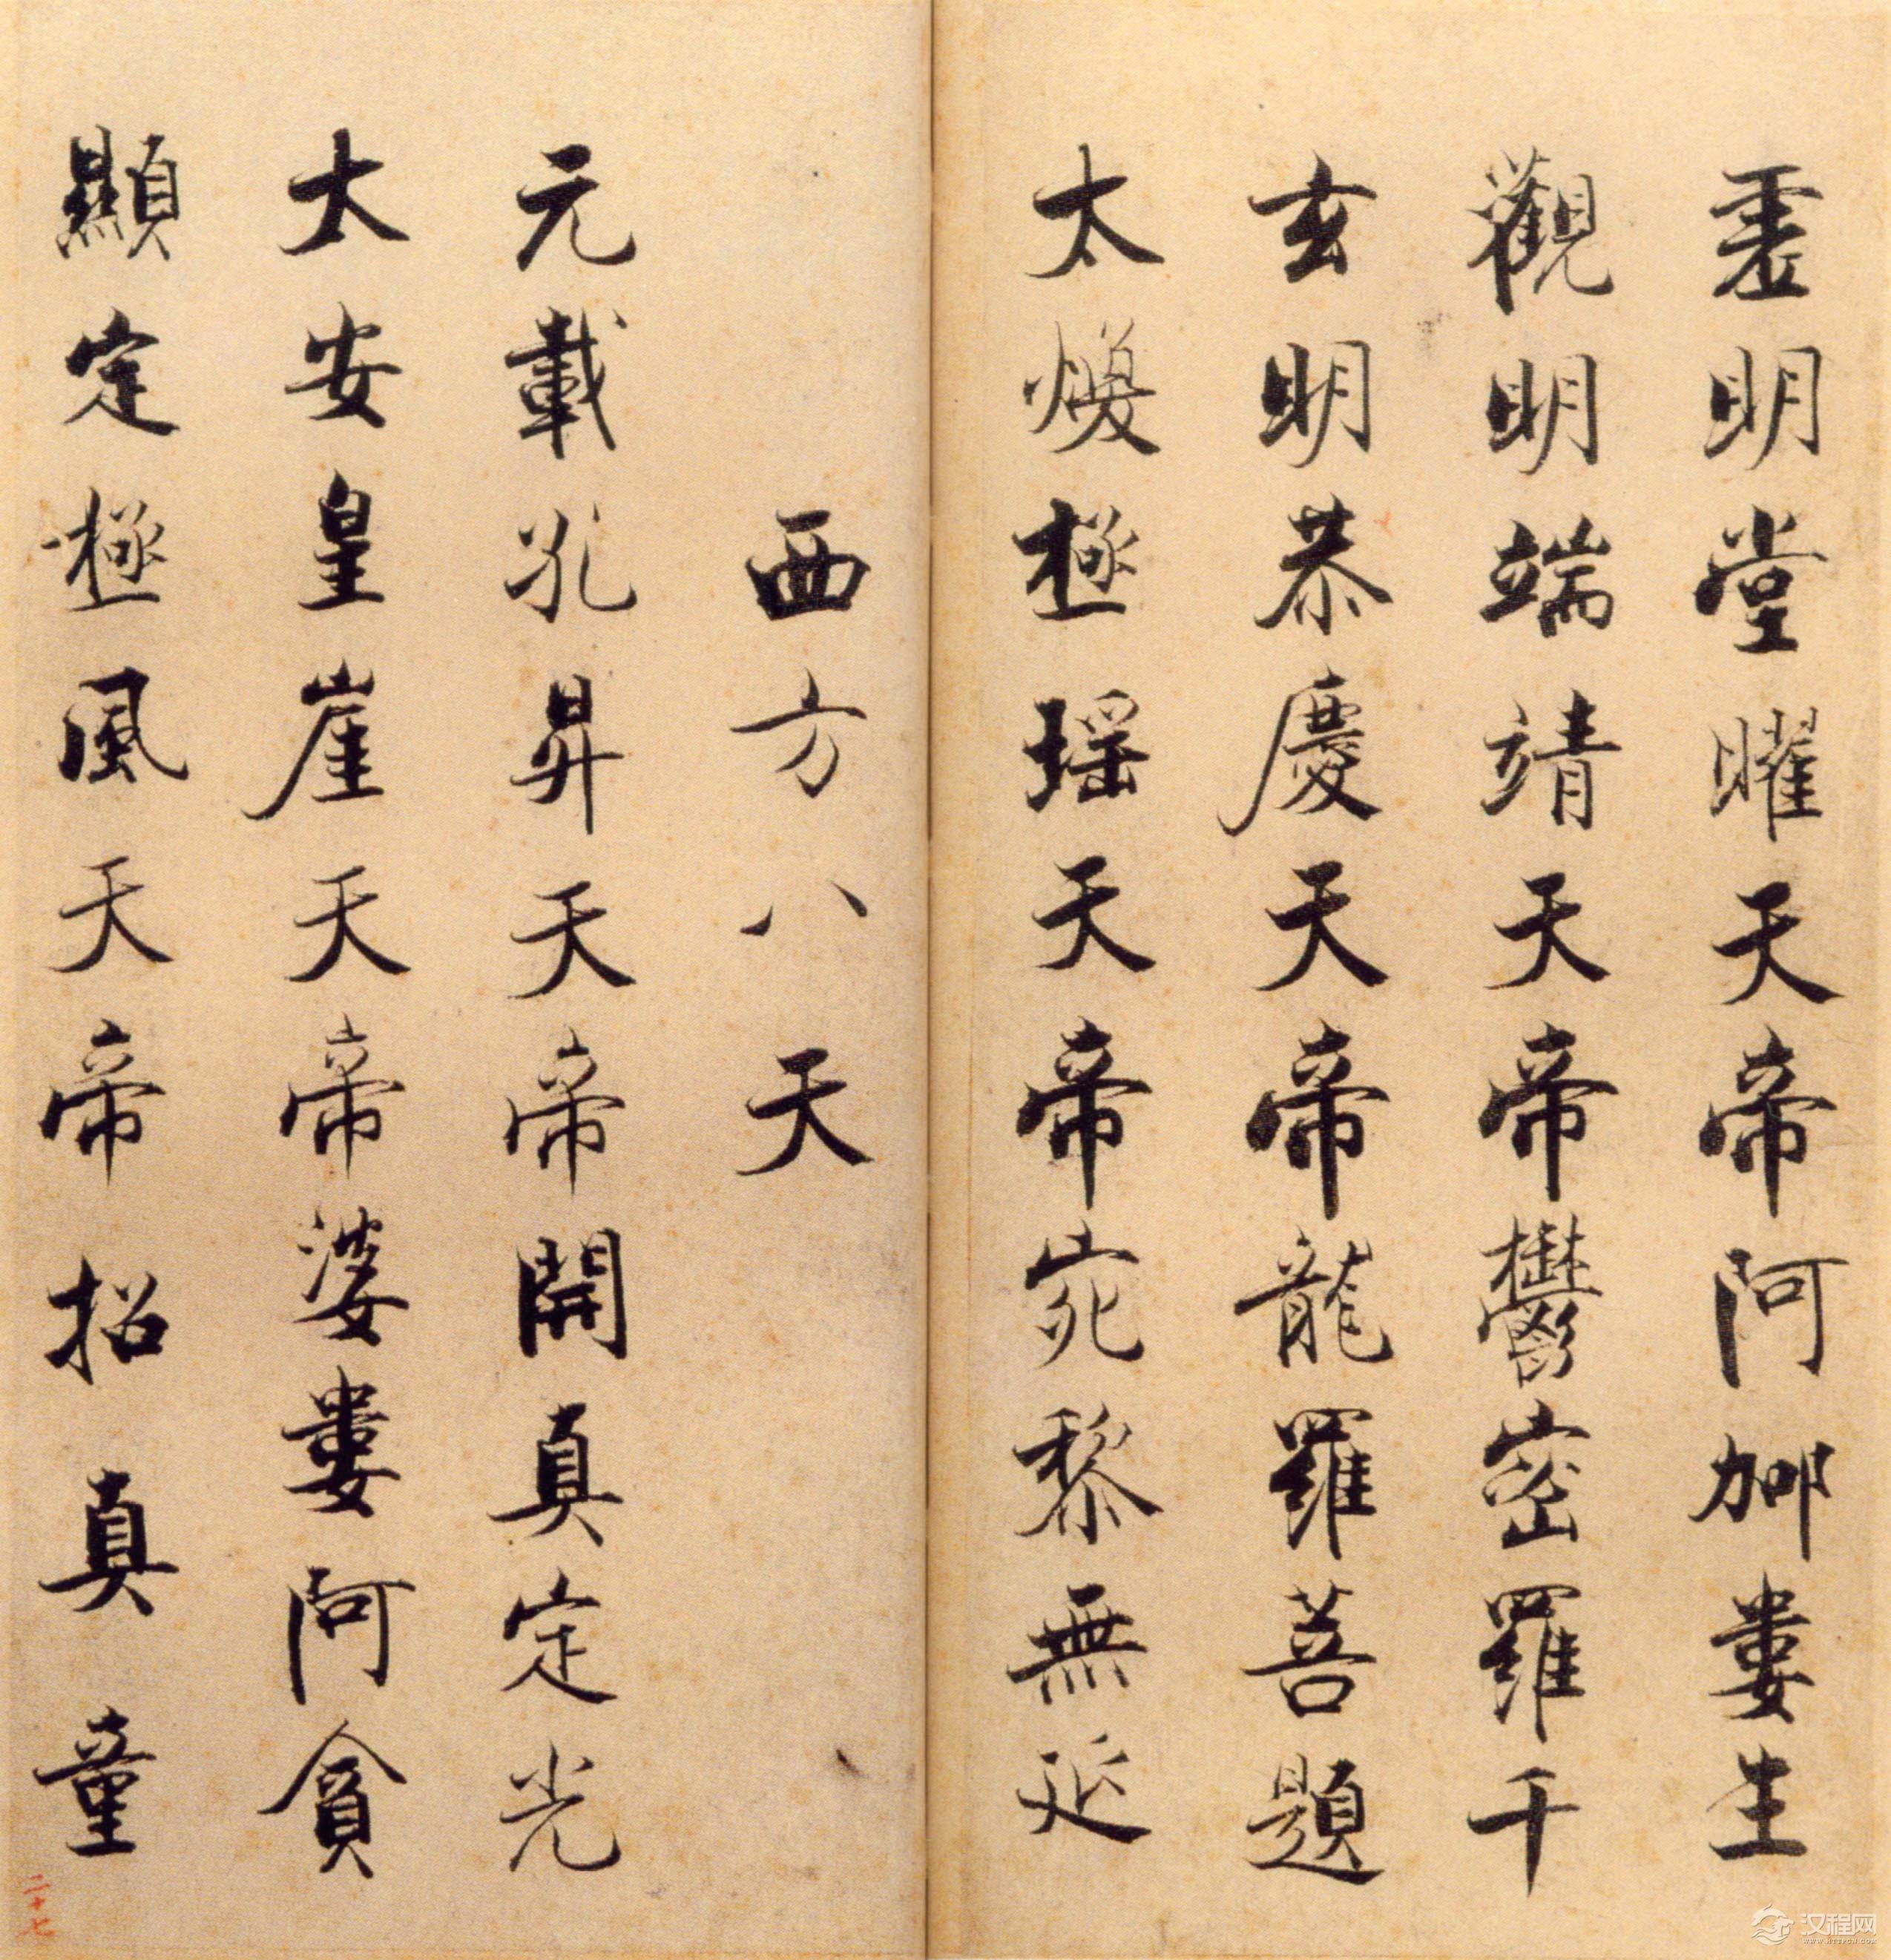 虛明堂曜天帝阿那婁生
觀明端靖天帝鬱密羅千
玄明恭慶天帝龍羅菩題
太煥極瑶天帝宛黎無延
西方八天
元載孔昇天帝開真定光
太安皇崖天帝婆婁阿貪
顯定極風天帝招真童
二十七
汉程网